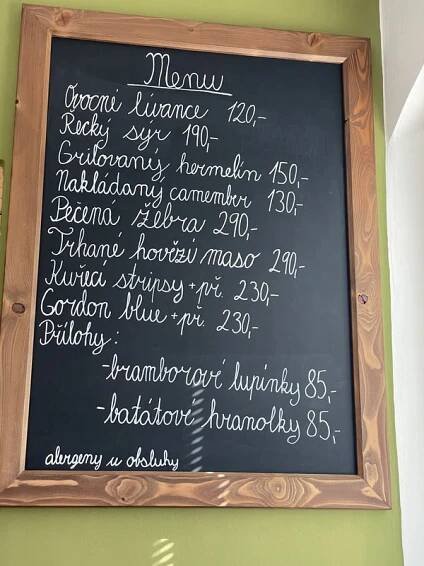 Menu
Ovocné lívance 120,-
Řecký sýr 190,-
Grilovaný hermelín 150,-
Nakládaný camember 130,-
Pečená žebra 290,-
Trhané hovězí maso 290,-
Kuřecí stripsy + př. 230,-
Gordon blue + př. 230,-
Přílohy:
-bramborové lupínky 85,-
-batátové hranolky 85,-
alergeny u obsluhy